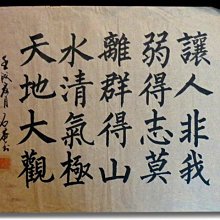 讓人非我
弱得志莫
離群得山
水清氣極
天地大觀